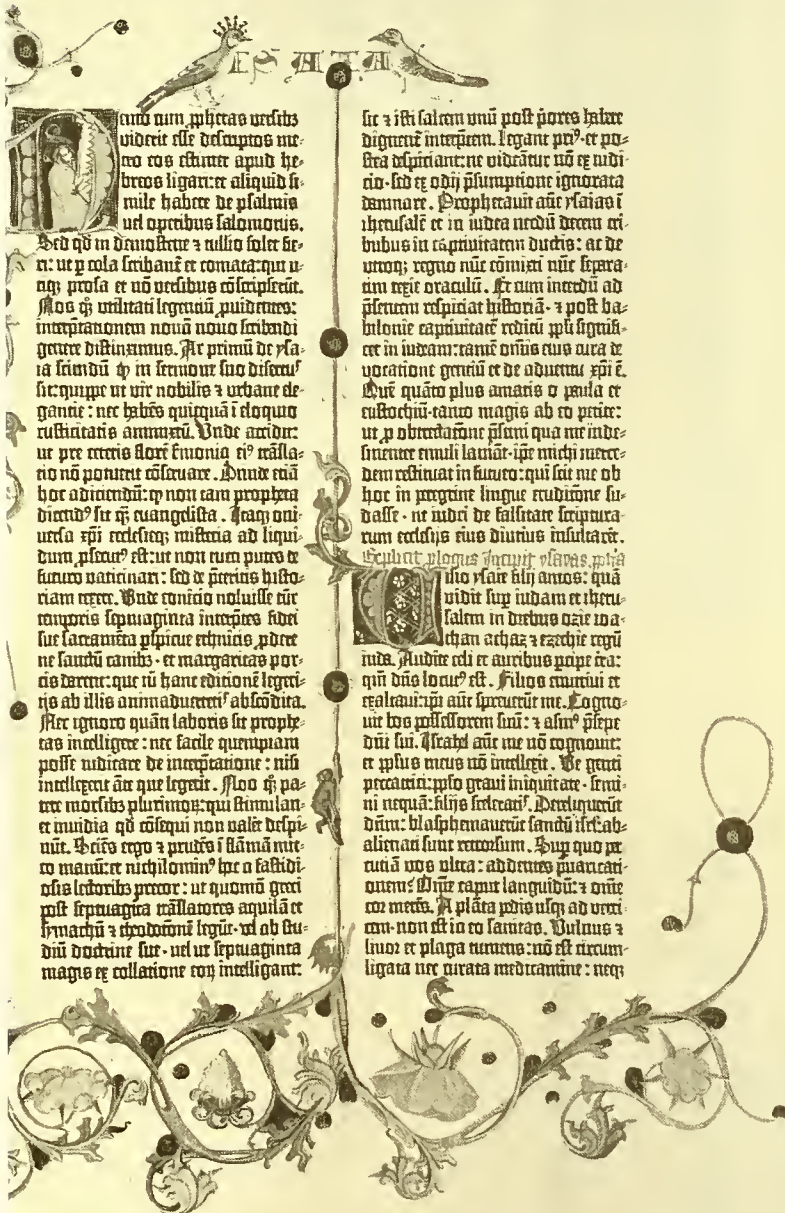 ISAIA
Nemo cum ꝓphetas versibꝫ
viderit esse descriptos me-
tro eos estimet apud he-
breos ligari: et aliquid si-
mile habere de psalmis
vel operibus salomonis.
Sed qď in demostene ⁊ tullio solet fie-
ri: ut ꝑ cola scribant̄ et comata: qui u-
tiqꝫ prosa et nō versibus cōscripserūt.
Nos qꝫ utilitati legentiū ꝓuidentes:
interp̄tationem novā novo scribendi
genere distinximus. Ac primū de ysa-
ia sciendū ꝙ in sermone suo disertu⁹
sit: quippe ut vir nobilis ⁊ urbane ele-
gantie: nec habēs quicquā ī eloquio
rusticitatis ammixtū. Unde accidit:
ut pre ceteris florē sermonis ei⁹ trāsla-
tio nō potuerit cōservare. Deinde etiā
hoc adiciendū: ꝙ non tam propheta
dicend⁹ sit qꝫ euangelista. Itaqꝫ uni-
versa xp̄i ecclesieqꝫ misteria ad liqui-
dum ꝓsecut⁹ est: ut non eum putes de
futuro vaticinari: sed de p̄teritis histo-
riam texere. Unde conicio noluisse tūc
temporis septuaginta interp̄tes fidei
sue sacramēta ꝑspicue ethnicis ꝓdere
ne sanctū canibꝫ · et margaritas por-
cis darent: que cū hanc editionē legeri-
tis ab illis animadverteti͛ abscōdita.
Nec ignoro quāti laboris sit prophe-
tas intelligere: nec facile quempiam
posse iudicare de interp̄tatione: nisi
intellexerit āte que legerit. Nos qꝫ pa-
tere morsibꝫ plurimoꝝ: qui stimulan-
te invidia qď cōsequi non valēt despi-
ciūt. Sciēs ergo ⁊ prudēs ī flāmā mit-
to manū: et nichilomin⁹ hoc a fastidi-
osis lectoribꝫ precor: ut quomō greci
post septuagīta trāslatores aquilā et
symachū ⁊ theodotionē legūt · vel ob stu-
diū doctrine sue · vel ut septuaginta
magis ex collatione eoꝝ intelligant:
sic ⁊ isti saltem unū post p̄ores habere
dignent̄ interp̄tem. Legant pri⁹ · et po-
stea despiciant: ne videāt̄ nō ex iudi-
cio · sed ex odij p̄sumptione ignorata
damnare. Prophetavit aūt ysaias ī
iherusalē et in iudea necdū decem tri-
bubus in captivitatem ductis: ac de
utroqꝫ regno nūc cōmixti nūc separa-
tim texit oraculū. Et cum interdū ad
p̄sentem respiciat historiā · ⁊ post ba-
bilonie captivitatē reditū ppl̄i signifi-
cet in iudeam: tamē omīs eius cura de
vocatione gentiū et de adventu xp̄i ē.
Quē quāto plus amatis o paula et
eustochiū · tanto magis ab eo petite:
ut ꝓ obtrectatōne p̄senti qua me inde-
sinenter emuli laniāt · ip̄e michi merce-
dem restituat in futuro: qui scit me ob
hoc in peregrine lingue eruditōne su-
dasse · ne iudei de falsitate scriptura-
rum ecclesijs eius diutius insultarēt.
Explicit ꝓlogus Incipit ysayas ꝓpha
Visio ysaie filij amos: quā
vidit suꝑ iudam et iheru-
salem in diebus ozie ioa-
than achaz ⁊ ezechie regū
iuda. Audite celi et auribus ꝑcipe t̄ra:
qm̄ dn̄s locut⁹ est. Filios enutrivi et
exaltavi: ip̄i aūt spreverūt me. Cogno-
vit bos possessorem suū: ⁊ asin⁹ p̄sepe
dn̄i sui. Israhel aūt me nō cognovit:
et ppl̄us meus nō intellexit. Ve genti
peccatrici: ppl̄o gravi iniquitate · semi-
ni nequā: filijs sceleratis. Dereliquerūt
dn̄m: blasphemaverūt sanctū isrl̄: ab-
alienati sunt retrorsum. Suꝑ quo ꝑ-
cutiā vos ultra: addentes p̄varicati-
onem? Om̄e caput languidū: ⁊ om̄e
cor merēs. A plāta pedis usqꝫ ad verti-
cem · non est in eo sanitas. Vulnus ⁊
livor et plaga tumens: nō est circum-
ligata nec curata medicamine: neqꝫ